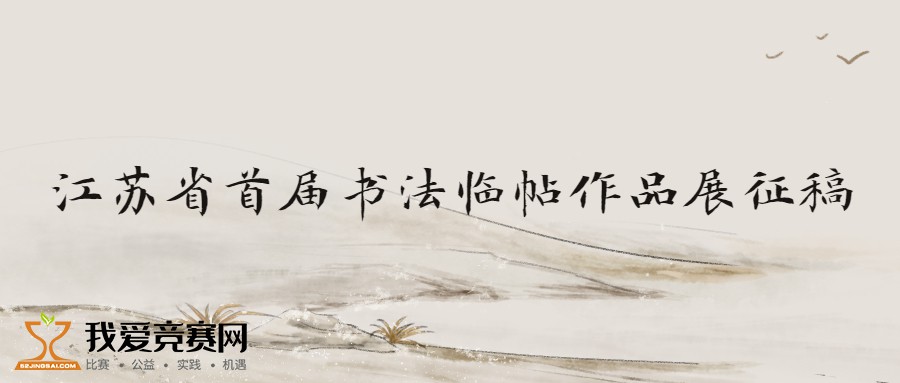 江苏省首届书法临帖作品展征稿
我爱竞赛网
比赛 • 公益 • 实践 • 机遇
52JINGSAI.COM